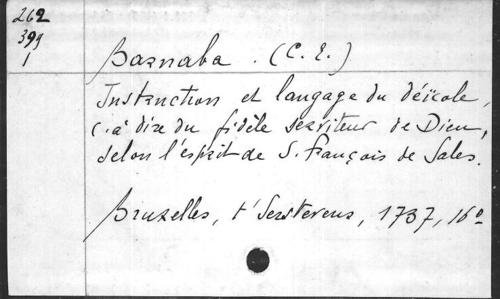 262
399
1
Barnaba . (C. E.)
Instruction et langage du déïcole,
c. à dire du fidèle serviteur de Dieu,
selon l'esprit de S. François de Sales.
Bruxelles, t'Serstevens, 1737, 16º